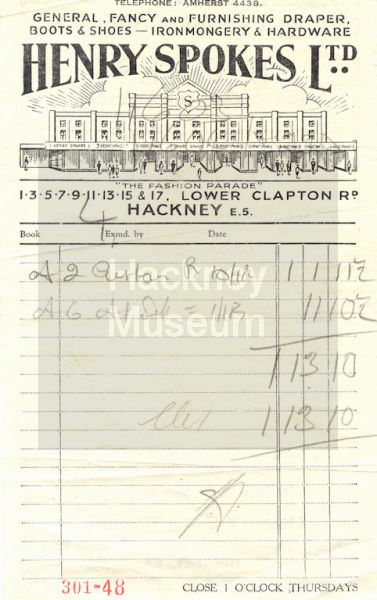 TELEPHONE: AMHERST 4438.
GENERAL, FANCY AND FURNISHING DRAPER,
BOOTS & SHOES — IRONMONGERY & HARDWARE
HENRY SPOKES LTD
S
"THE FASHION PARADE"
1·3·5·7·9·11·13·15 & 17, LOWER CLAPTON RD
HACKNEY E.5.
4
Book Exmd. by Date
A 2 10/1½ 1 1 11½
A 6 = 1/1½ 11 10½
Hackney
Museum
1 13 10
1 13 10
301-48 CLOSE 1 O'CLOCK THURSDAYS